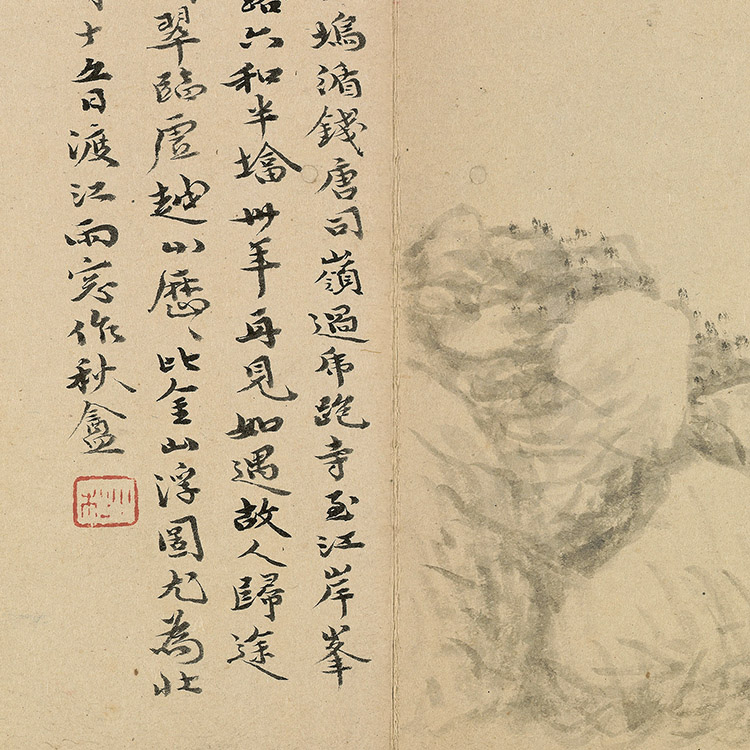 塢循錢唐司嶺過虎跑寺至江岸峯
六和半墖卅年再見如遇故人歸途
翠臨虛越山歷〻比金山浮圖尤為壯
十五日渡江雨窗作秋盦
小松